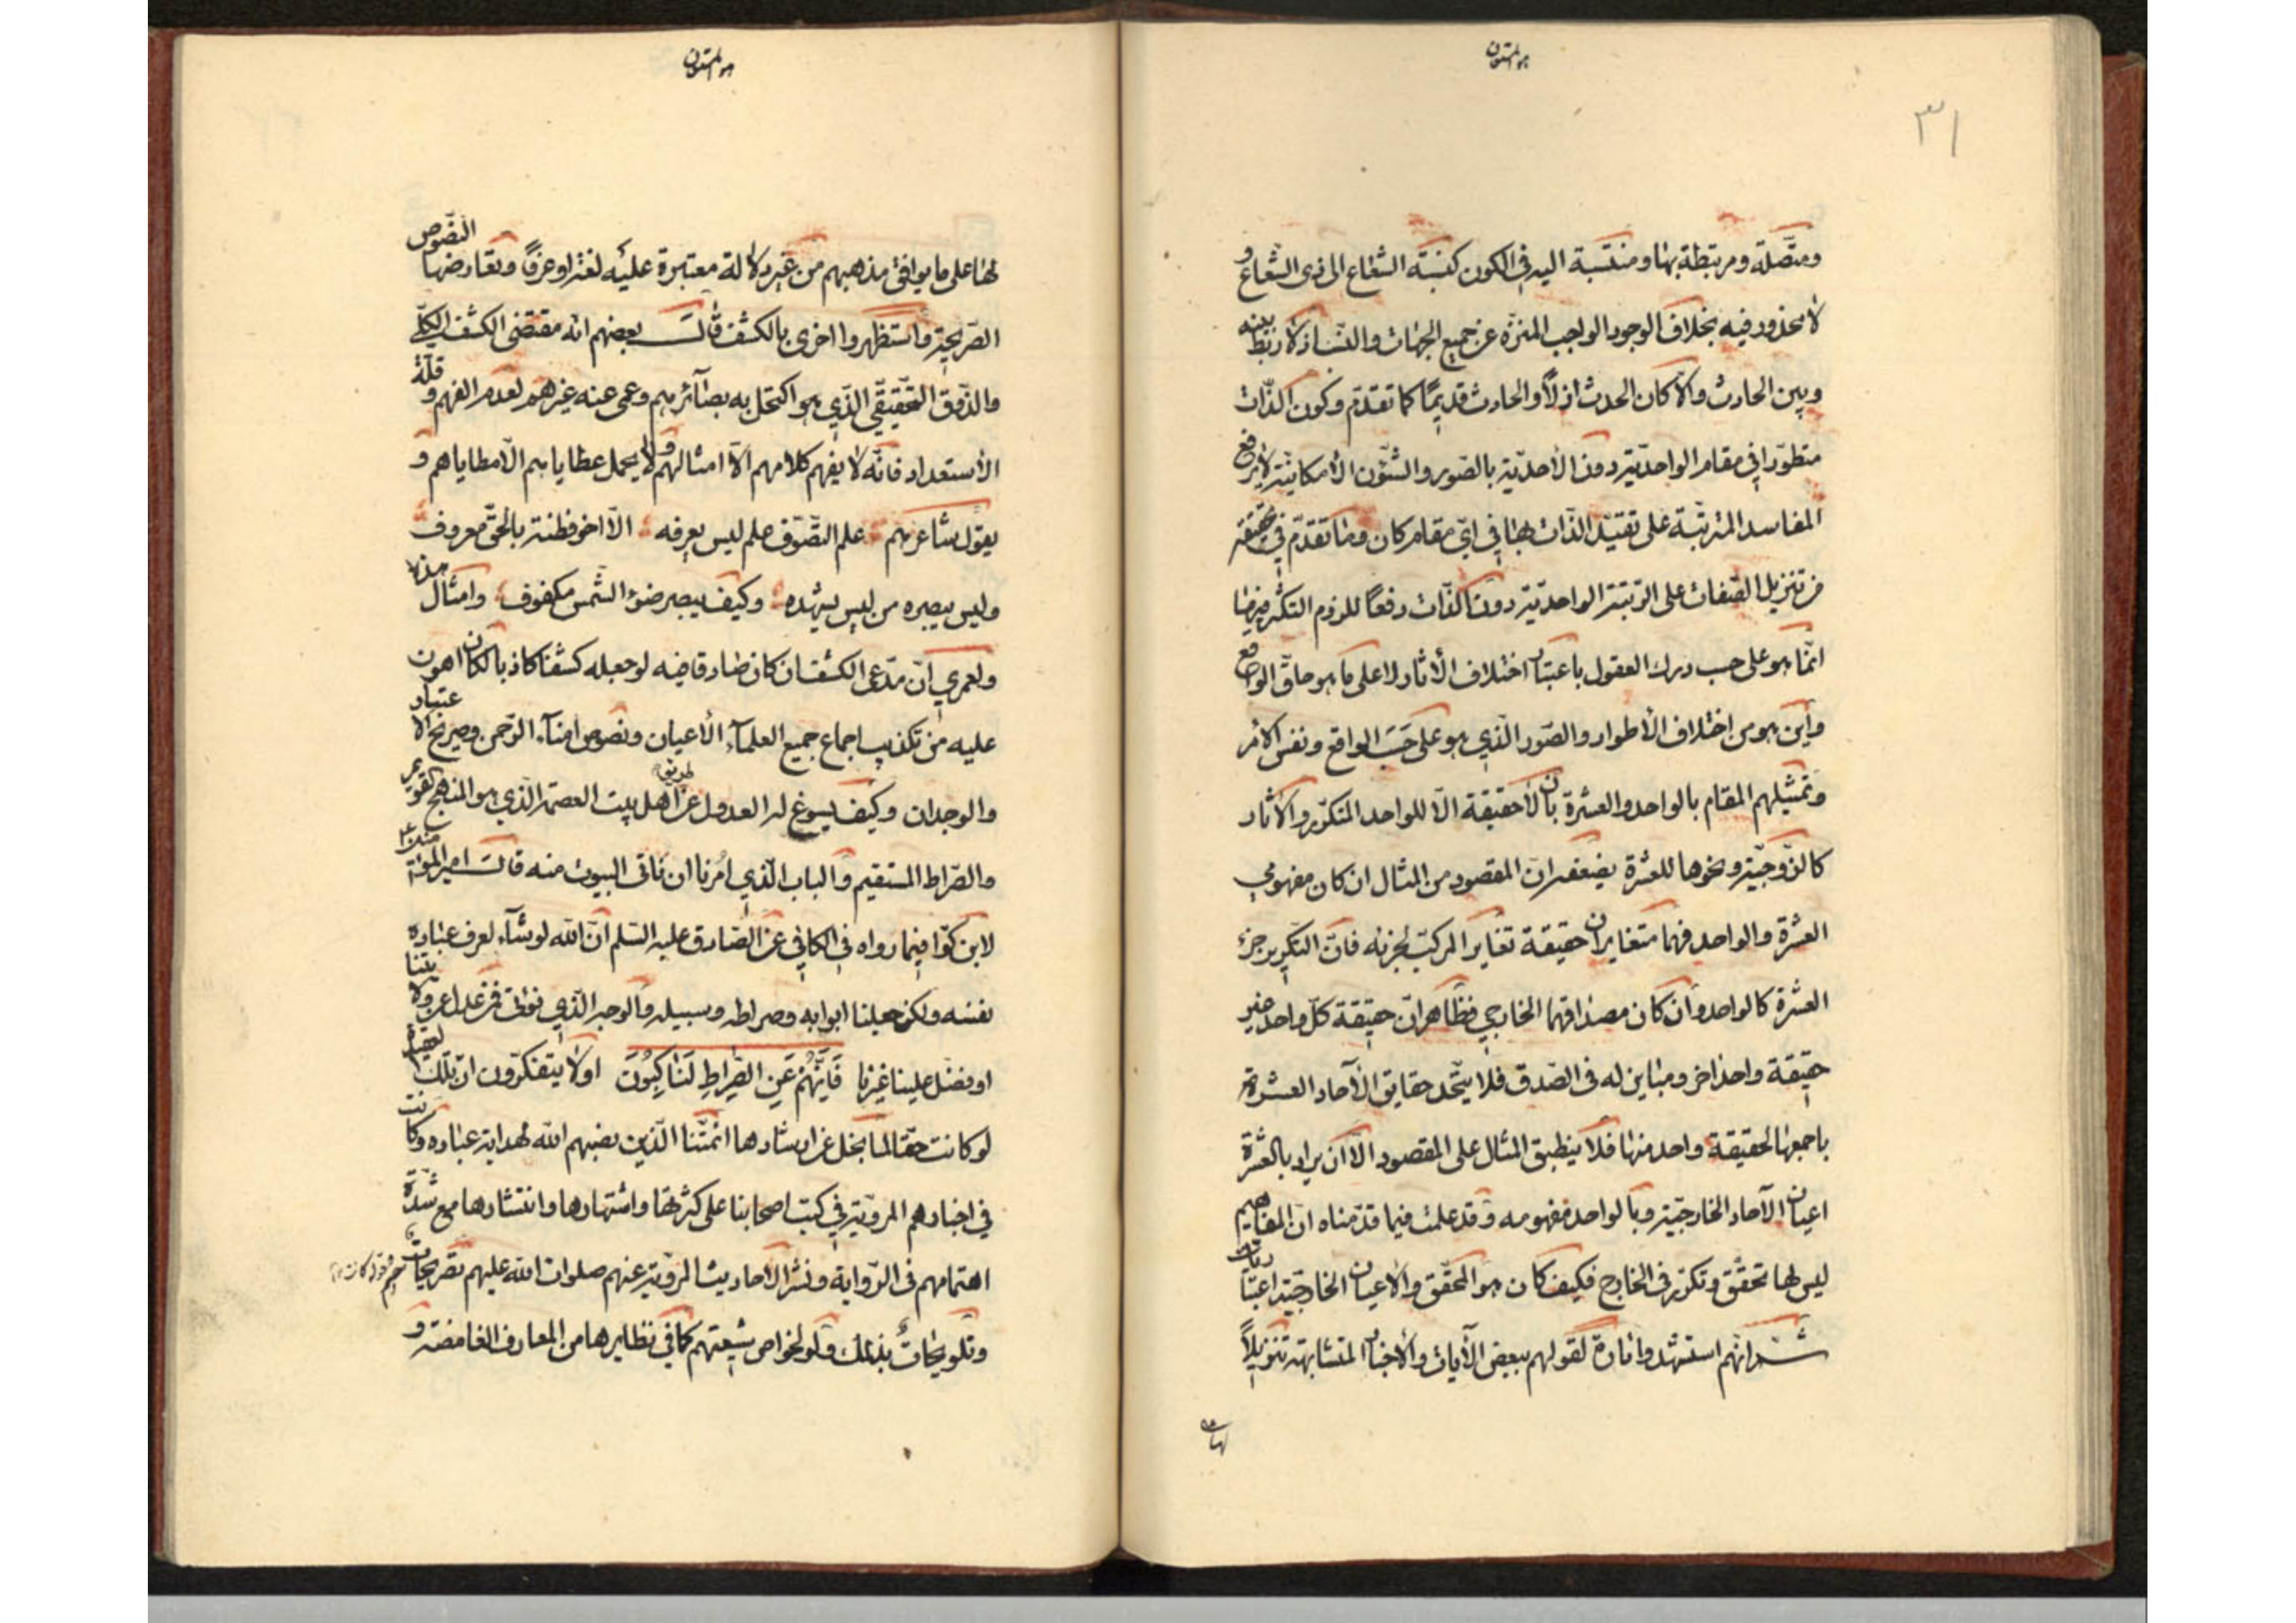 هو المستعان
٣١
ومتصلة ومرتبطة بها ومنتسبة اليه في الكون كنسبة الشعاع الى ذى الشعاع و
لا محذور فيه بخلاف الوجود الواجب المنزّه عن جميع الجهات والنسب اذ لا ربط بينه
وبين الحادث والّا كان الحدث ازلاً والحادث قديمًا كما تقدّم وكون الذّات
متطوّرا في مقام الواحديّة دون الأحديّة بالصّور والشّئون الأمكانيّة لا يرفع
المفاسد المترتبة على تقيّد الذّات بها في اىّ مقام كان وما تقدّم في
من تنزيل الصّفات على الرّتبة الواحديّة دون الذّات دفعًا للزوم التكثّر فيها
انّما هو على حسب درك العقول باعتبار اختلاف الأثار لا على ما هو حاقّ الواقع
واين هو من اختلاف الأطوار والصّور الّذي هو على حسب الواقع ونفس الأمر
وتمثيلهم المقام بالواحد والعشرة بان لا حقيقة الّا للواحد المتكرّر والأثار
كالزّوجيّة ونحوها للعشرة يضعفه انّ المقصود من المثال ان كان مفهومي
العشرة والواحد فهما متغايران حقيقة تغاير المركّب لجزئه فانّ التكرير جزء
العشرة كالواحد وان كان مصداقهما الخارجي فظاهر انّ حقيقة كلّ واحد غير
حقيقة واحد اخر ومباين له في الصّدق فلا يتّحد حقايق الآحاد العشرة
باجمعها لحقيقة واحد منها فلا ينطبق المثال على المقصود الّا ان يراد بالعشرة
اعيان الآحاد الخارجيّة وبالواحد مفهومه وقد علمت فيما قدّمناه انّ المفاهيم
ليس لها تحقّق وتكرّر في الخارج فكيف كان هو المحقّق والأعيان الخارجيّة اعتباريات
ثمّ انهم استشهدوا تارة لقولهم ببعض الآيات والأخبار المتشابهة تنزيلاً
لها
هو المستعان
لها على ما يوافق مذهبهم من غير دلالة معتبرة عليه لغة او عرفًا وتعارضها النّصوص
الصّريحة واستظهروا اخرى بالكشف قالـــ بعضهم انّه مقتضى الكشف الكلّي
والذّوق التّحقيقّي الّذي هو اكتحل به بصآئرهم وعمى عنه غيرهم لعدم الفهم و قلّة
الأستعداد فانّه لا يفهم كلامهم الّا امثالهم ولا يحمل عطاياهم الّا مطاياهم و
يقول شاعرهم علم التصّوّف علم ليس يعرفه الّا اخو فطنة بالحقّ معروف
وليس يبصره من ليس يشهده وكيف يبصر ضوء الشّمس مكفوف وامثال هذا
ولعمري انّ مدّعى الكشف ان كان صادقا فيه لو جعله كشفا كاذبا لكان اهون
عليه من تكذيب اجماع جميع العلمآء الأعيان ونصوص امنآء الرّحمن وصريح الاعتبار
والوجدان وكيف يسوغ له العدول عن طريق اهل بيت العصمة الّذي هو المنهج القويم
والصّراط المستقيم والباب الّذي امرنا ان ناتى البيوت منه قالـــ امير المؤمنين
لابن كوّا فيما رواه في الكافي عن الصّادق عليه السّلم انّ الله لو شآء لعرف عباده
نفسه ولكن جعلنا ابوابه وصراطه وسبيله والوجه الّذي يؤتى فمن عدل عن ولايتنا
او فضّل علينا غيرنا فَاِنَّهُمْ عَنِ الصِّراطِ لَناكِبُونَ اولا يتفكّرون انّ تلك العقيدة
لو كانت حقّا لما بخل عن ارشادها ائمّتنا الّذين نصبهم الله لهداية عباده وكانت
في اخبارهم المرويّة في كتب اصحابنا على كثرتها واشتهارها وانتشارها مع شدّة
اهتمامهم في الرّواية ونشر الأحاديث المرويّة عنهم صلوات الله عليهم تصريحات
وتلويحات بذلك ولو لخواص شيعتهم كما في نظايرها من المعارف الغامضة و